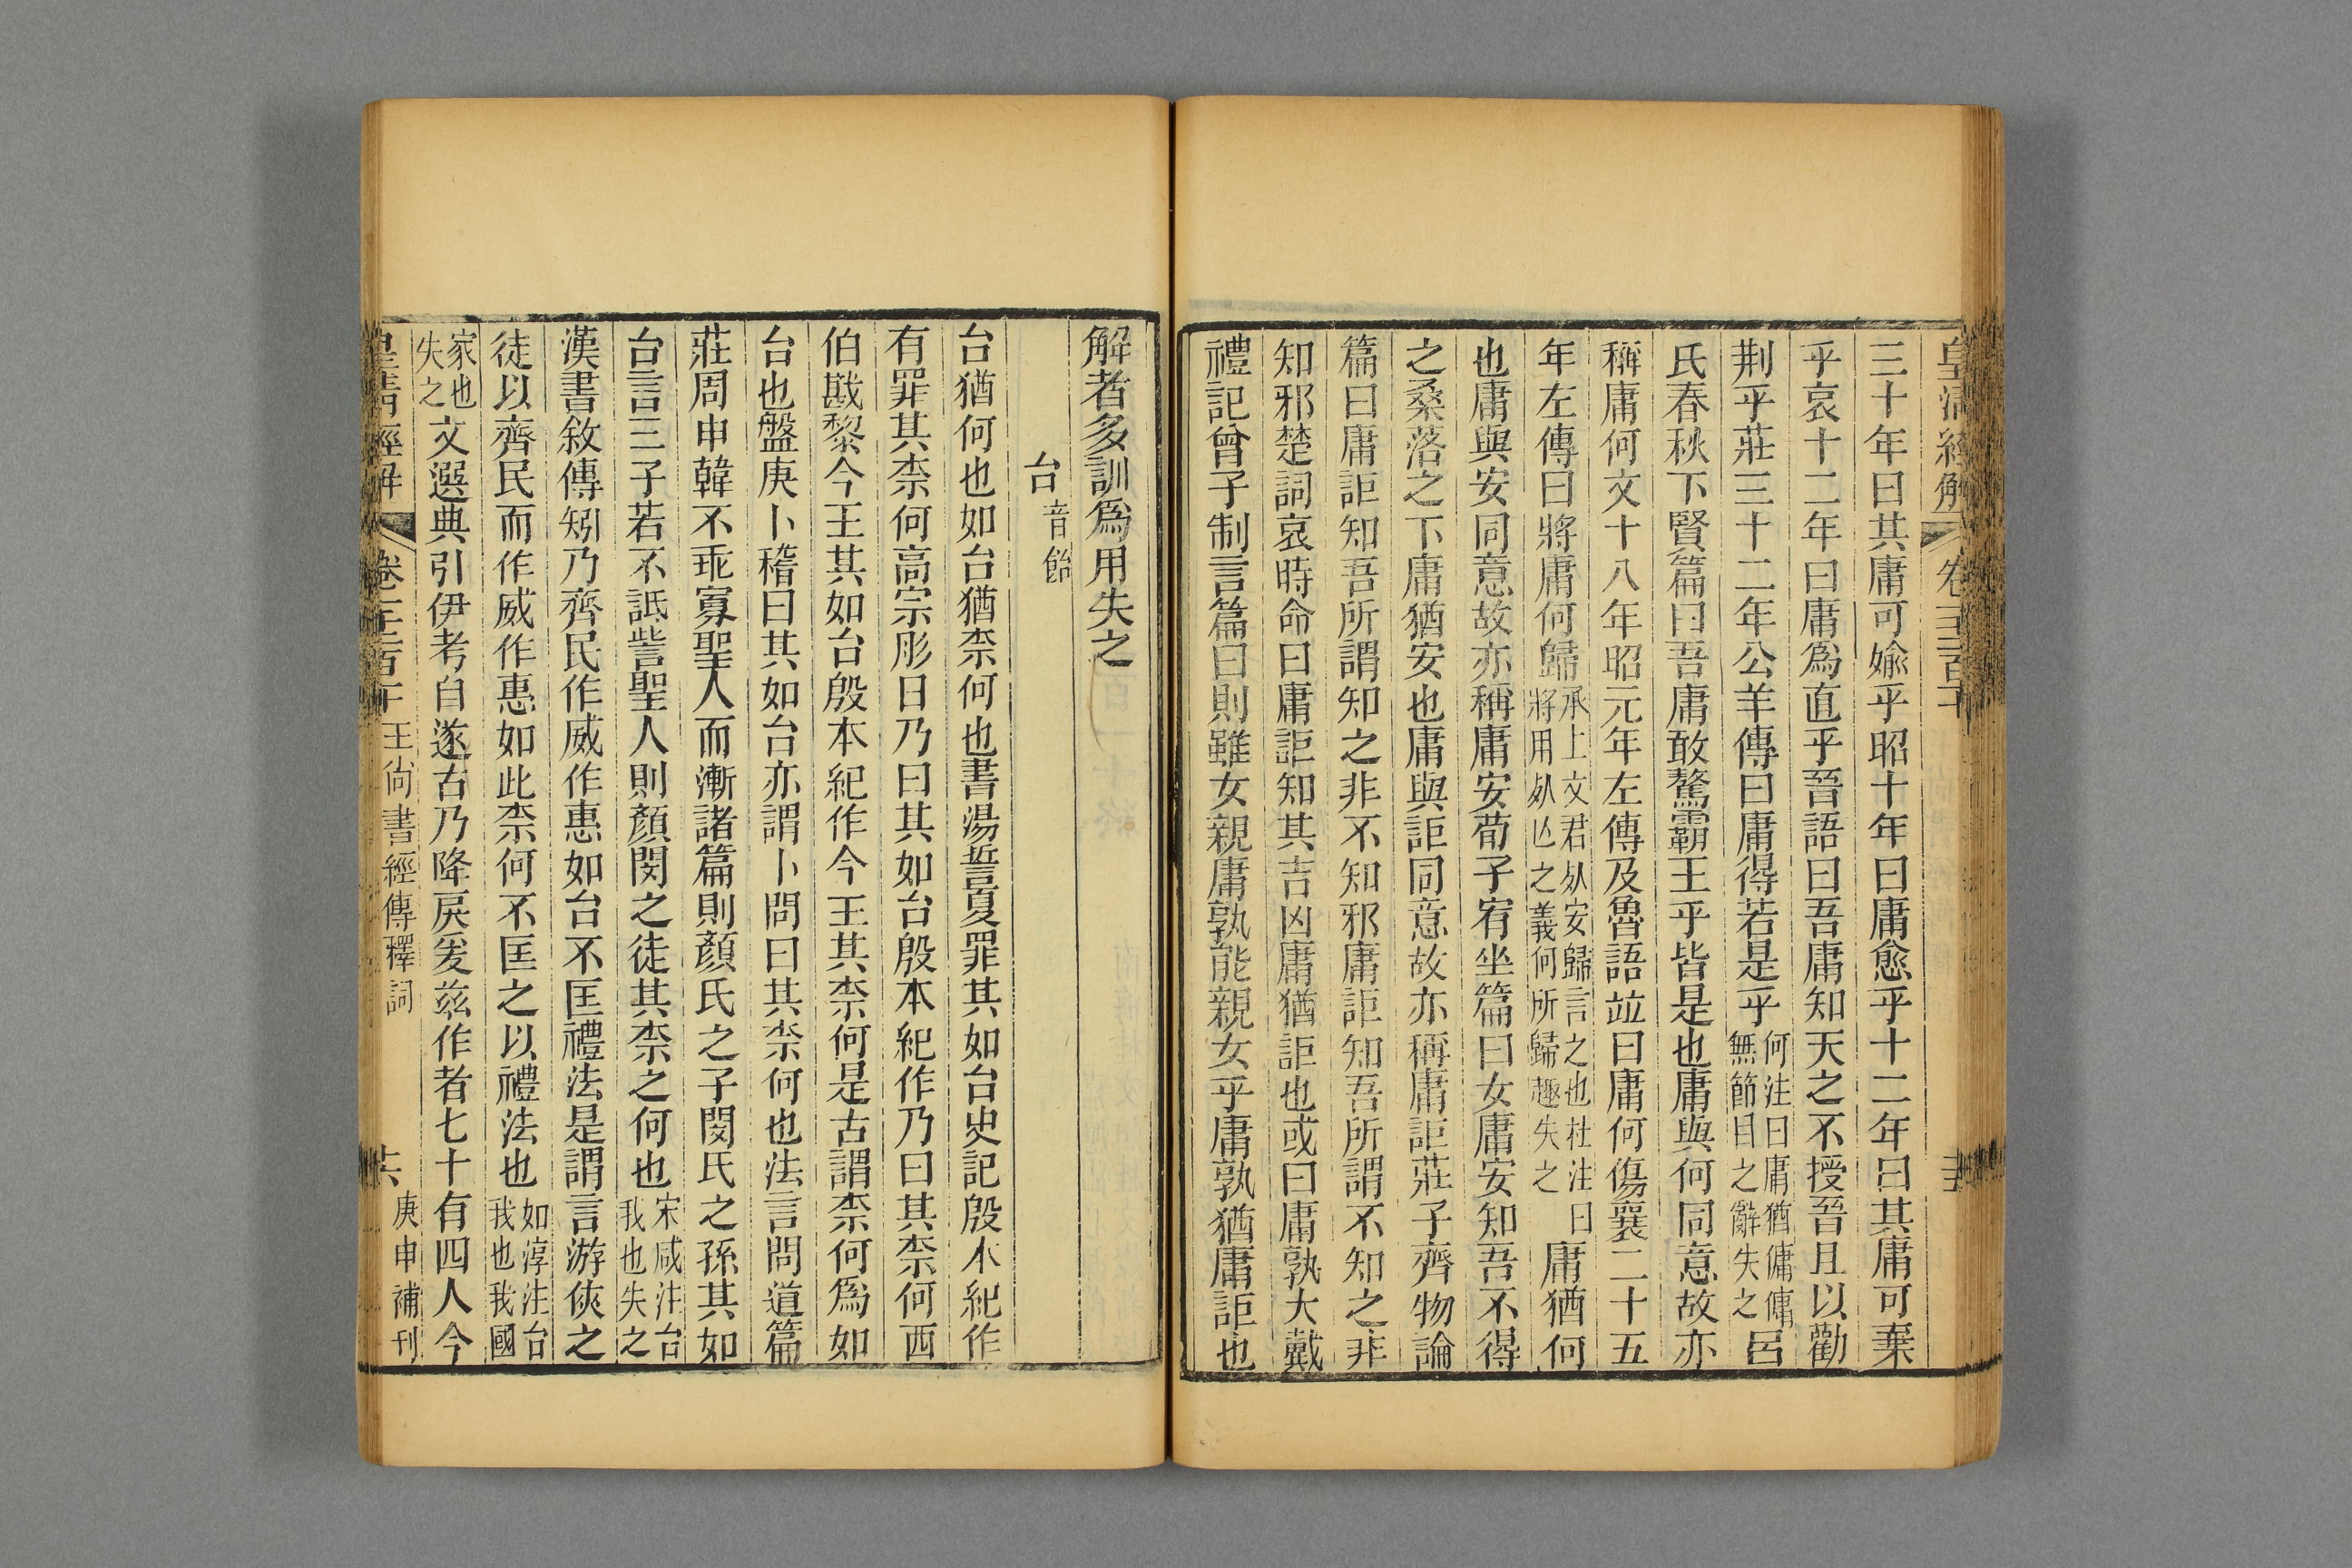 皇清經解 卷一千二百十
三十年曰其庸可媮乎昭十年曰庸愈乎十二年曰其庸可棄
乎哀十二年曰庸爲直乎晉語曰吾庸知天之不授晉且以勸
荆乎莊三十二年公羊傳曰庸得若是乎何注曰庸猶傭傭無節目之辭失之呂
氏春秋下賢篇曰吾庸敢驁霸王乎皆是也庸與何同意故亦
稱庸何文十八年昭元年左傳及魯語竝曰庸何傷襄二十五
年左傳曰將庸何歸承上文君死安歸言之也杜注曰將用死亾之義何所歸趣失之庸猶何
也庸與安同意故亦稱庸安荀子宥坐篇曰女庸安知吾不得
之桑落之下庸猶安也庸與詎同意故亦稱庸詎莊子齊物論
篇曰庸詎知吾所謂知之非不知邪庸詎知吾所謂不知之非
知邪楚詞哀時命曰庸詎知其吉凶庸猶詎也或曰庸孰大戴
禮記曾子制言篇曰則雖女親庸孰能親女乎庸孰猶庸詎也
解者多訓爲用失之
台音飴
台猶何也如台猶柰何也書湯誓夏罪其如台史記殷本紀作
有罪其柰何高宗肜日乃曰其如台殷本紀作乃曰其柰何西
伯戡黎今王其如台殷本紀作今王其柰何是古謂柰何爲如
台也盤庚卜稽曰其如台亦謂卜問曰其柰何也法言問道篇
莊周申韓不乖寡聖人而漸諸篇則顏氏之子閔氏之孫其如
台言三子若不詆訾聖人則顏閔之徒其柰之何也宋咸注台我也失之
漢書敘傳矧乃齊民作威作惠如台不匡禮法是謂言游俠之
徒以齊民而作威作惠如此柰何不匡之以禮法也如淳注台我也我國
家也失之文選典引伊考自遂古乃降戾爰茲作者七十有四人今
皇淸經解 卷一千二百十 王尙書經傳釋詞 六 庚申補刊